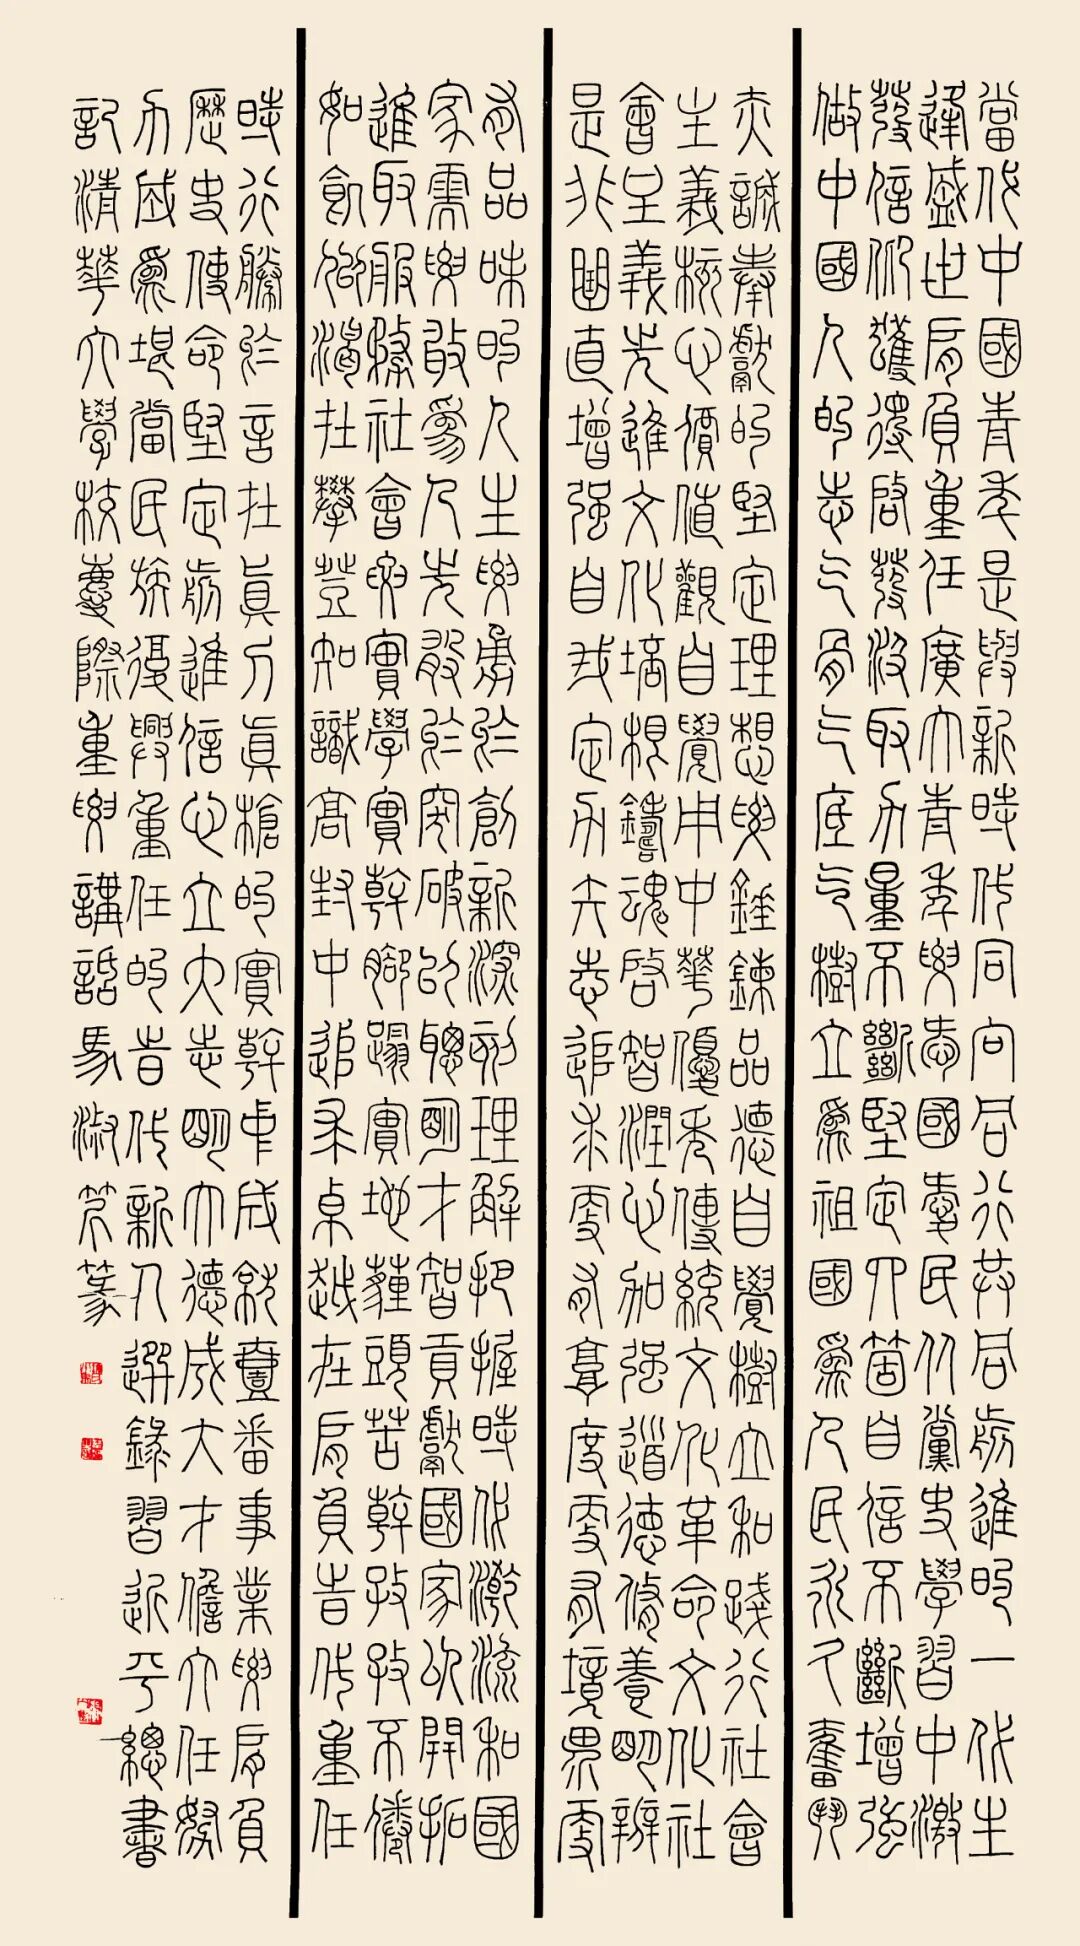 當代中國青年是與新時代同向同行共同前進的一代生
逢盛世肩負重任廣大青年要愛國愛民從黨史學習中激
發信仰獲得啓發汲取力量不斷堅定四箇自信不斷增強
做中國人的志气骨气底气樹立爲祖國爲人民永久奮鬥
赤誠奉獻的堅定理想要錘鍊品德自覺樹立和踐行社會
主義核心價值觀自覺用中華優秀傳統文化革命文化社
會主義先進文化培根鑄魂啓智潤心加强道德修養明辨
是非曲直增强自我定力矢志追求更有高度更有境界更
有品味的人生要勇於創新深刻理解把握時代潮流和國
家需要敢爲人先敢於突破以聰明才智貢獻國家以開拓
進取服務社會要實學實幹腳踏實地薶頭苦幹孜孜不倦
如飢似渴在攀登知識高封中追求卓越在肩負時代重任
時行勝於言在真刀真槍的實幹中成就壹番事業要肩負
歷史使命堅定前進信心立大志明大德成大才擔大任努
力成爲堪當民族復興重任的時代新人選錄習近平總書
記清華大學校慶際重要講話馬淑篆